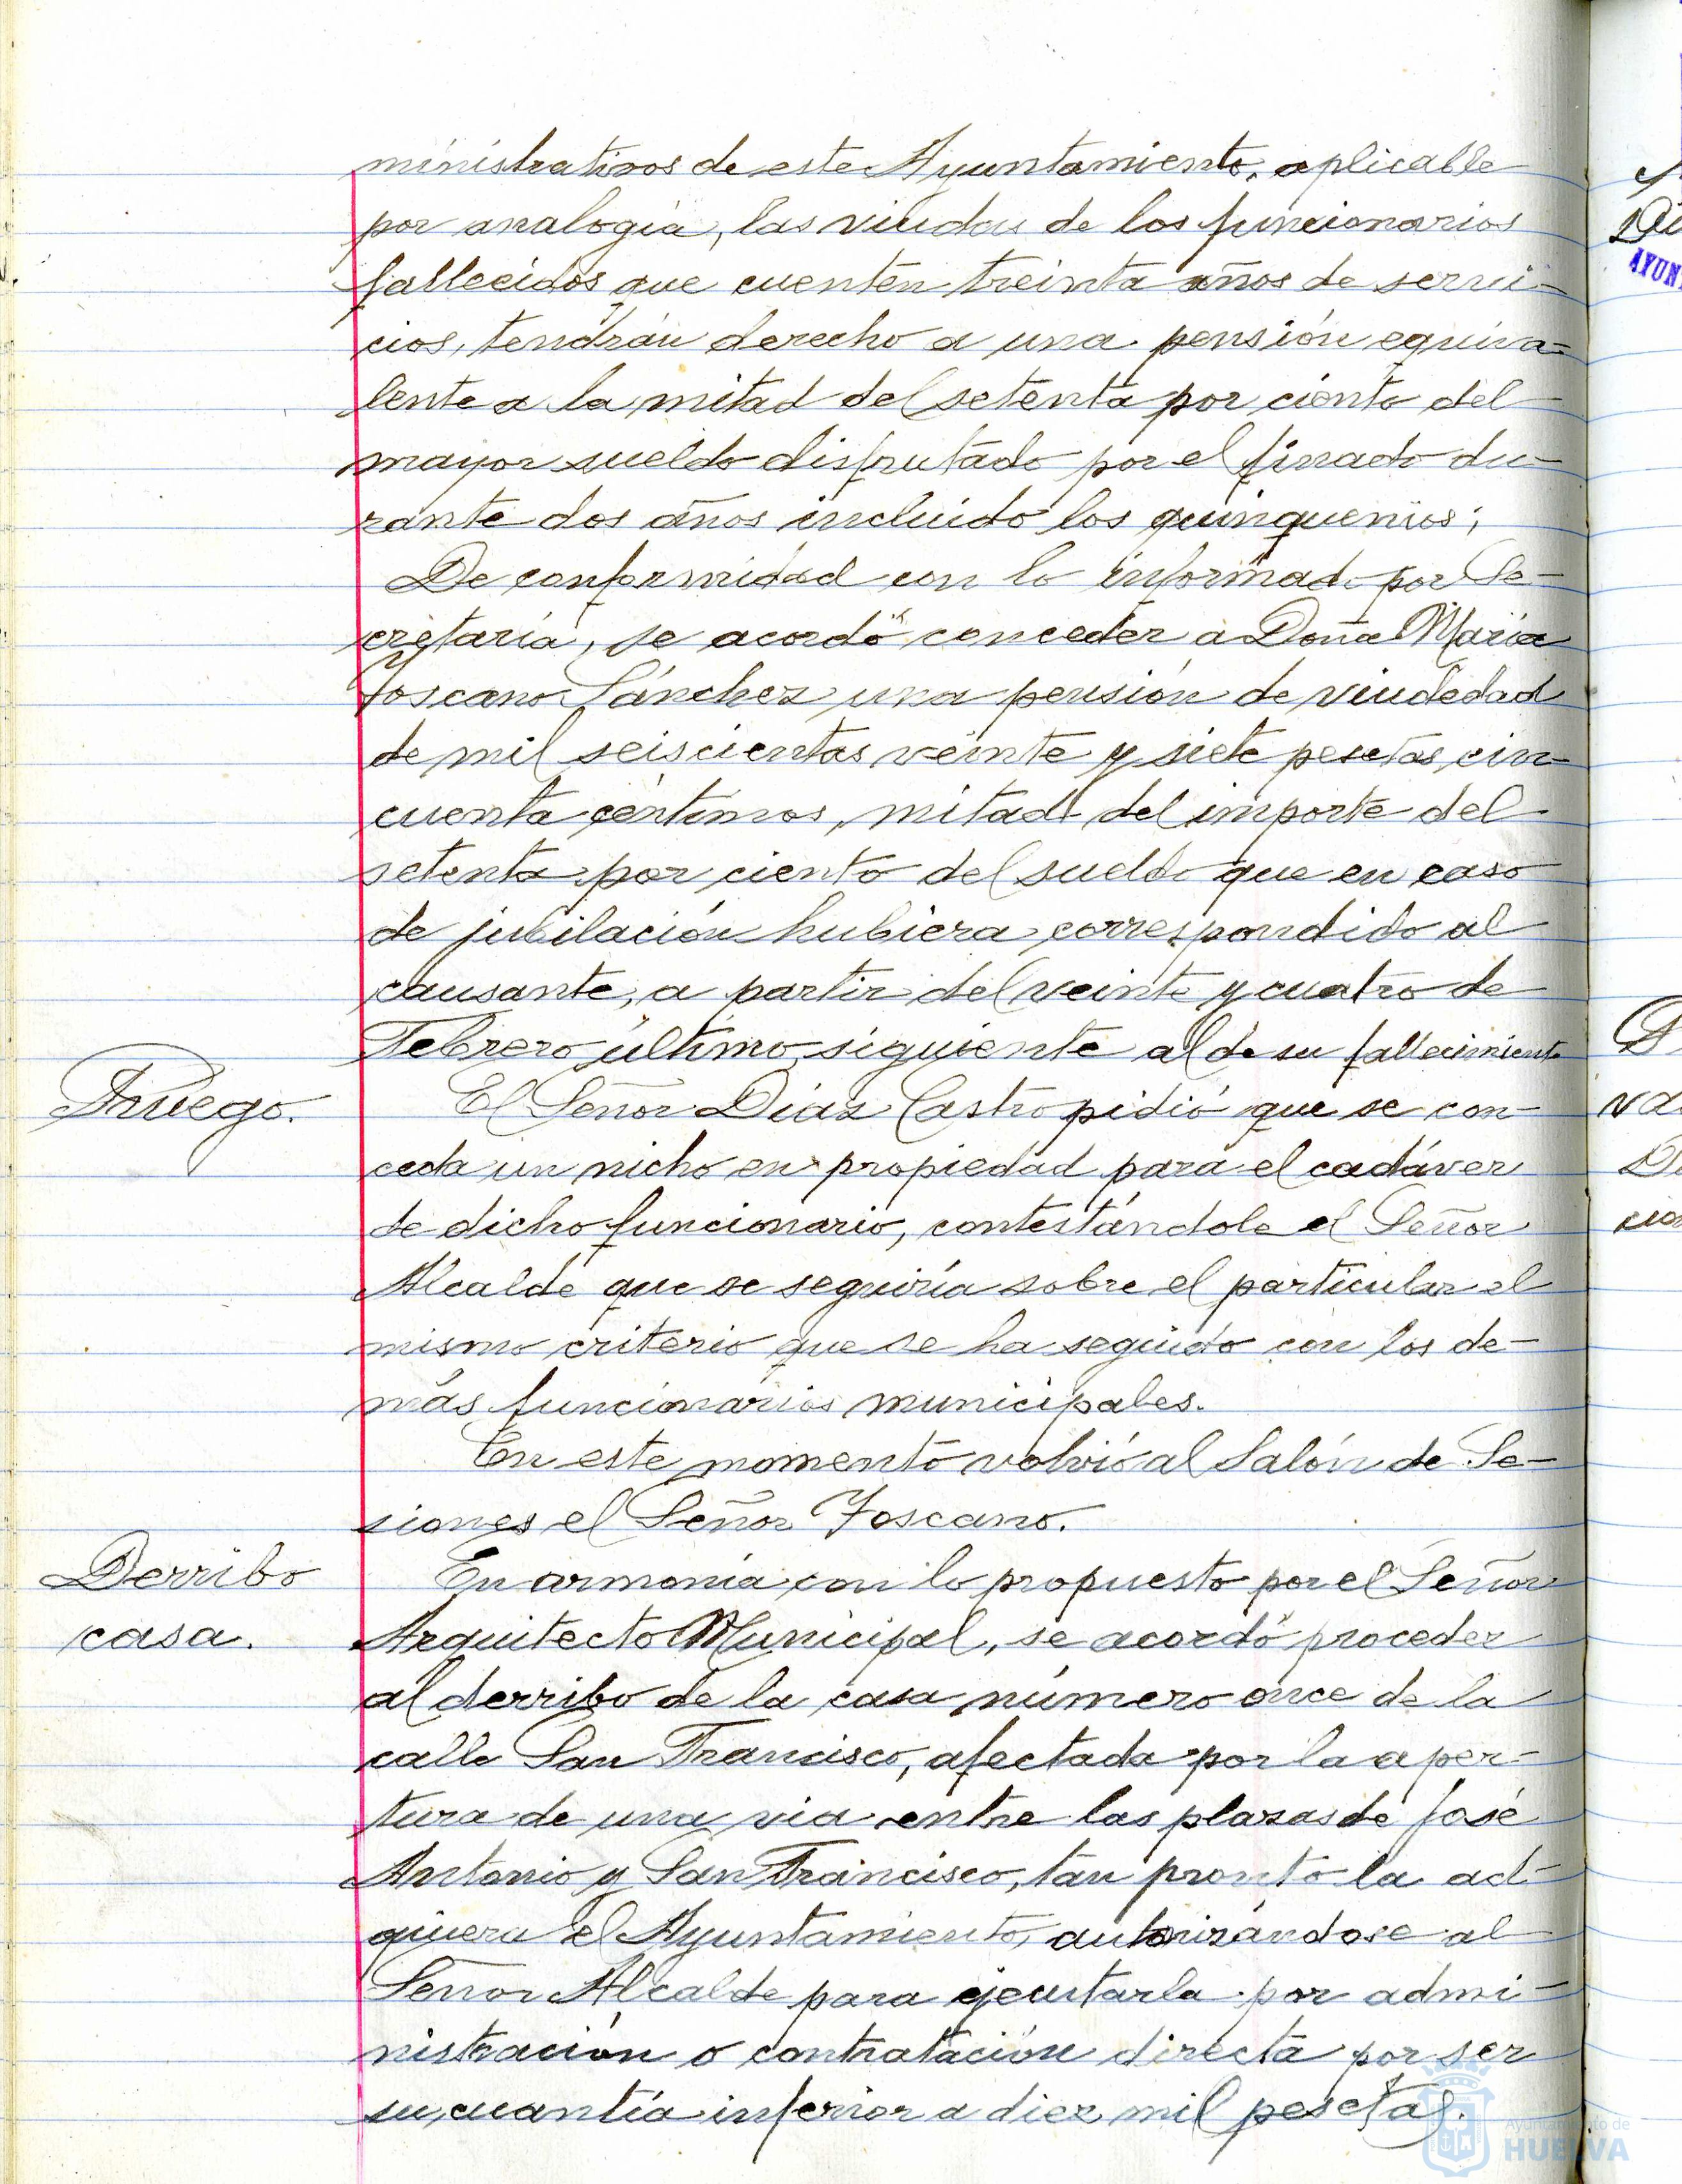 ministrativos de este Ayuntamiento, aplicable
por analogía, las viudas de los funcionarios
fallecidos que cuenten treinta años de servi-
cios, tendrán derecho a una pensión equiva-
lente a la mitad del setenta por ciento del
mayor sueldo disfrutado por el finado du-
rante dos años incluido los quinquenios;
De conformidad con lo informado por Se-
cretaría, se acordó conceder a Doña María
Toscano Sánchez una pensión de viudedad
de mil seiscientas veinte y siete pesetas, cin-
cuenta céntimos, mitad del importe del
setenta por ciento del sueldo que en caso
de jubilación hubiera correspondido al
causante, a partir del veinte y cuatro de
Febrero último, siguiente al de su fallecimiento
Ruego.
El Señor Díaz Castro pidió que se con-
ceda un nicho en propiedad para el cadáver
de dicho funcionario, contestándole el Señor
Alcalde que se seguiría sobre el particular el
mismo criterio que se ha seguido con los de-
más funcionarios municipales.
En este momento volvió al Salón de Se-
siones el Señor Toscano.
Derribo
casa.
En armonía con lo propuesto por el Señor
Arquitecto Municipal, se acordó proceder
al derribo de la casa número once de la
calle San Francisco, afectada por la aper-
tura de una via entre las plazas de José
Antonio y San Francisco, tan pronto la ad-
quiera el Ayuntamiento, autorizándose al
Señor Alcalde para ejecutarla por admi-
nistración o contratación directa por ser
su cuantía inferior a diez mil pesetas.
AYUN
Ayuntamiento de
HUELVA